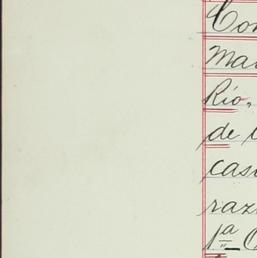 Con
Mar
Río.
de
cas
raz
1ª C